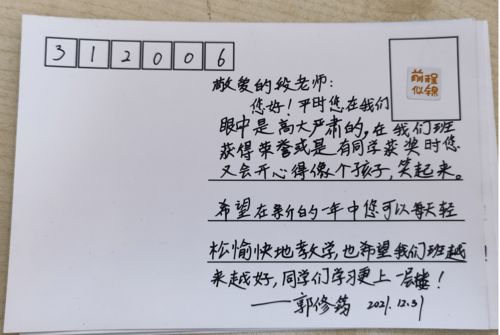 312006
前程
似锦
敬爱的段老师：
您好！平时您在我们
眼中是高大严肃的，在我们班
获得荣誉或是有同学获奖时您
又会开心得像个孩子，笑起来。
希望在新的一年中您可以每天轻
松愉快地教学，也希望我们班越
来越好，同学们学习更上一层楼！
——郭修筠 2021.12.31